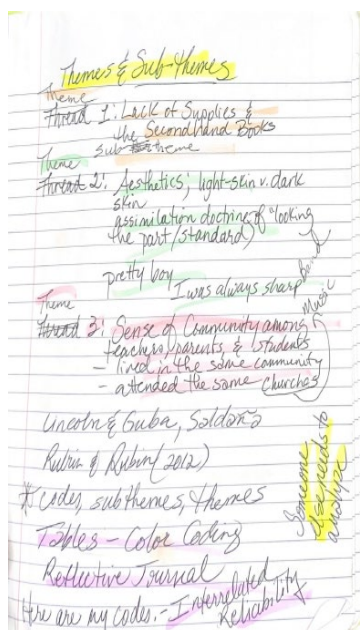 Themes & Sub-themes
Theme
Thread 1: Lack of Supplies &
the Secondhand Books
sub theme
Theme
Thread 2: Aesthetics; light-skin v. dark
skin
assimilation doctrine of "looking
the part/standard)
pretty boy
I was always sharp
band
music
Theme
Thread 3: Sense of Community among
teachers, parents, & students
- lived in the same community
- attended the same churches
Lincoln & Guba, Saldana
Rubin & Rubin (2012)
* Codes, subthemes, themes
Someone
else needs to
analyze
Tables - Color Coding
Reflective Journal
Here are my codes. - Interrelated
Reliability